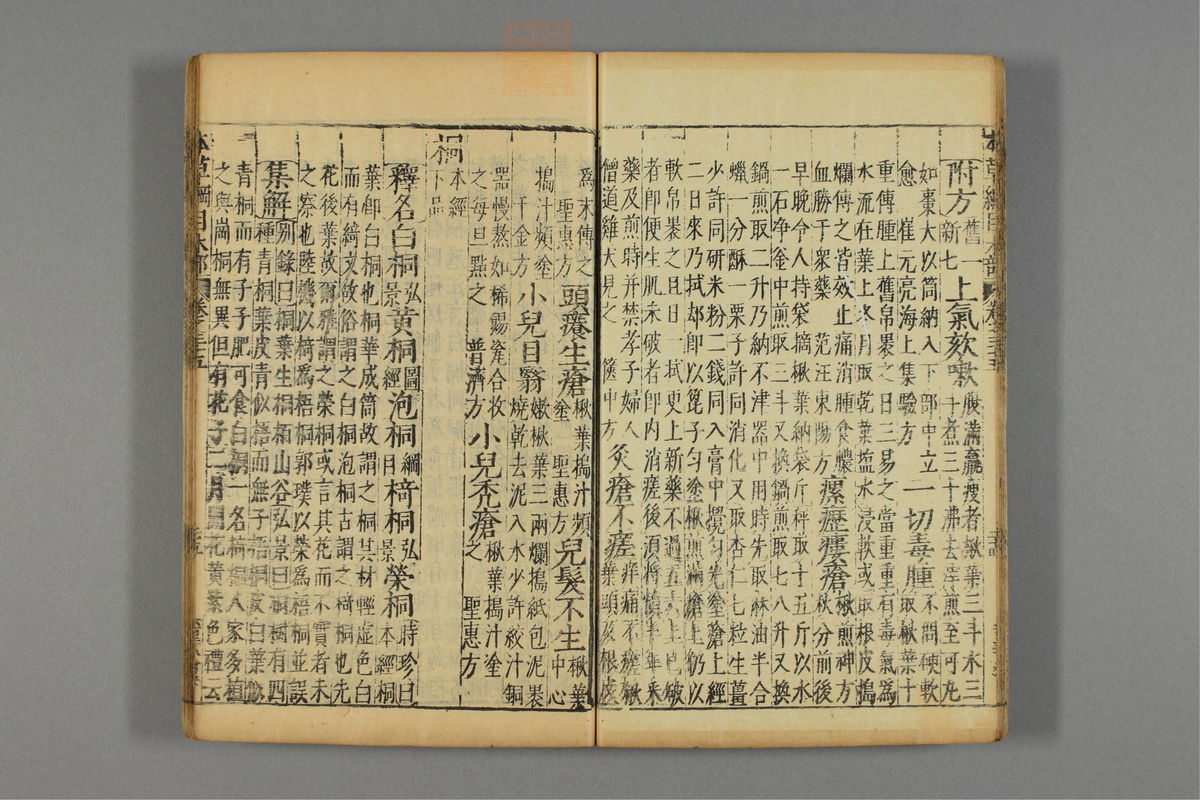 附方舊一新七上氣欬嗽腹滿羸瘦者楸葉三斗水三斗煮三十沸去滓煎至可丸
如棗大以筒納入下部中立愈 崔元亮海上集驗方一切毒腫不問硬軟取楸葉十
重傅腫上舊帛裹之日三易之當重重有毒氣為水流在葉上冬月取乾葉塩水浸軟或取根皮搗
爛傅之皆效止痛消腫食膿血勝于衆藥 范汪東陽方瘰癧瘻瘡楸煎神方秋分前後
早晚令人持袋摘楸葉納袋秤取十五斤以水一石净釜中煎取三斗又換鍋煎取七八升又換
鍋煎取二升乃納不津器中用時先取麻油半合蠟一分酥一栗子許同消化又取杏仁七粒生薑
少許同研米粉二錢同入膏中攪勻先塗瘡上經二日來乃拭却即以篦子勻塗楸煎滿瘡上仍以
軟帛裹之旦日一拭更上新藥不過五六上已破者即便生肌未破者即内消瘥後須將慎半年采
藥及煎時并禁孝子婦人僧道雞犬見之 篋中方灸瘡不瘥痒痛不瘥楸葉頭及根皮
爲末傅之 聖惠方頭癢生瘡楸葉搗汁頻塗 聖惠方兒髮不生楸葉中心
搗汁頻塗 千金方小兒目翳嫩楸葉三兩爛搗紙包泥裹燒乾去泥入水少許絞汁銅
器慢熬如稀餳瓷合收之每旦點之 普濟方小兒禿瘡楸葉搗汁塗之 聖惠方
桐本經下品
釋名白桐弘景黄桐圖經泡桐綱目椅桐弘景榮桐時珍曰本經桐
葉卽白桐也桐華成筒故謂之桐其材輕虚色白而有綺文故俗謂之白桐泡桐古謂之椅桐也先
花後葉故爾雅謂之榮桐或言其花而不實者未之察也陸璣以椅爲梧桐郭璞以榮爲梧桐並誤
集解别録曰桐葉生桐栢山谷弘景曰桐樹有四種青桐葉皮青似梧而無子梧桐皮白葉似
青桐而有子子肥可食白桐一名椅桐人家多植之與崗桐無異但有花子二月開花黄紫色禮云
本草綱目木部 卷三十五